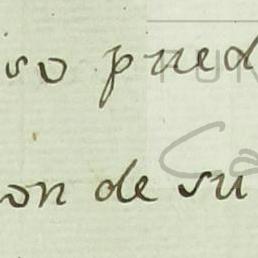 so pued
on de su